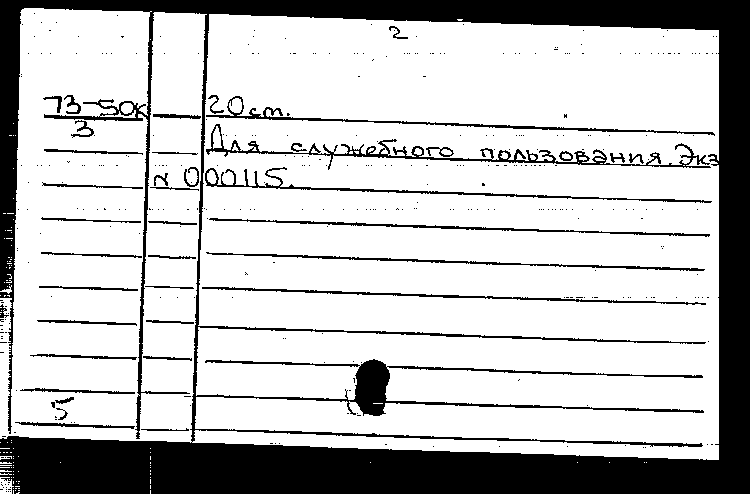 2
73-50к 20 см.
3
Для служебного пользования. Экз
N 000115.
5